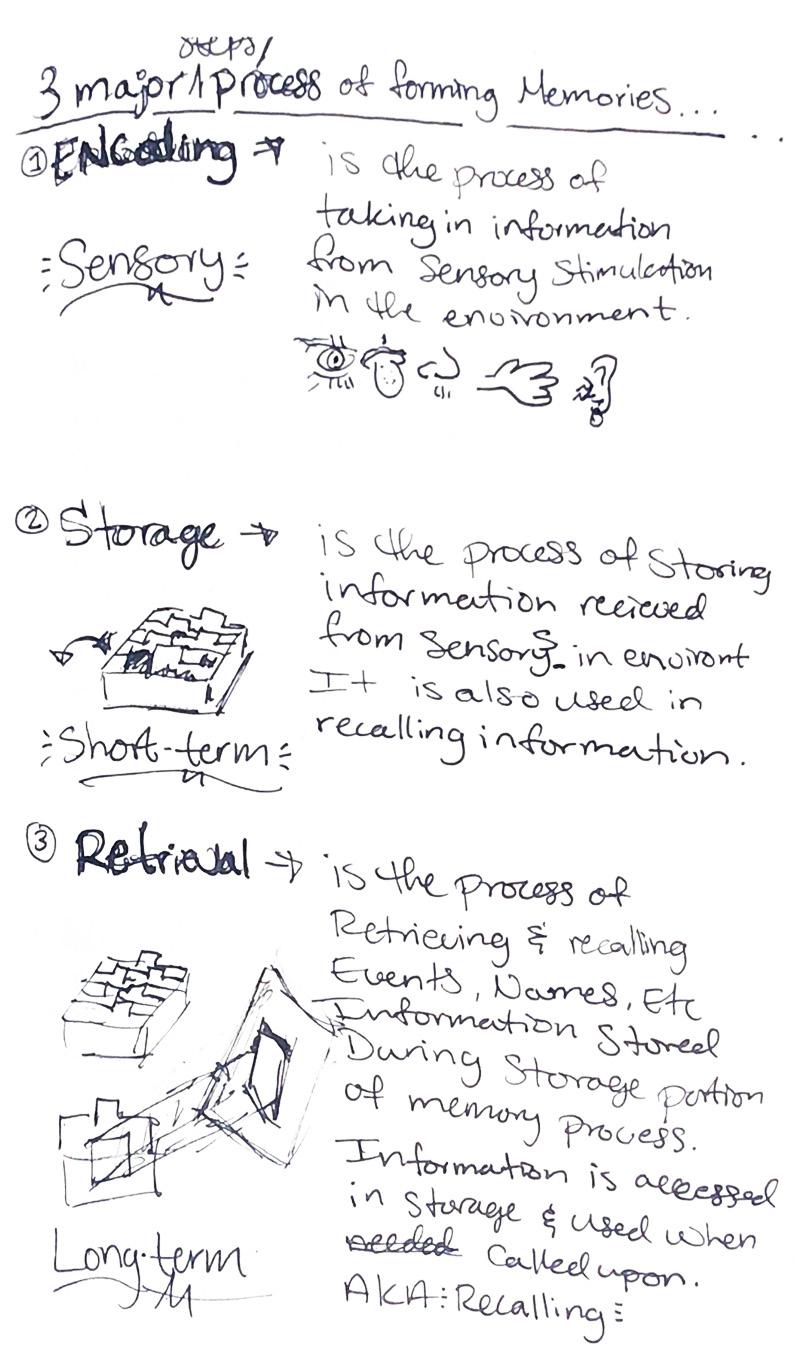 steps/
3 major ^ process of forming Memories...
① ENCoding → is the process of
taking in information
:Sensory: from Sensory Stimulation
in the environment.
② Storage → is the process of Storing
information recieved
from Sensorys in environt
It is also used in
:Short-term: recalling information.
③ Retrieval → is the process of
Retrieving & recalling
Events, Names, Etc
Information Stored
During Storage portion
of memory process.
Information is accessed
in Storage & used when
Long-term needed Called upon.
AKA: Recalling: